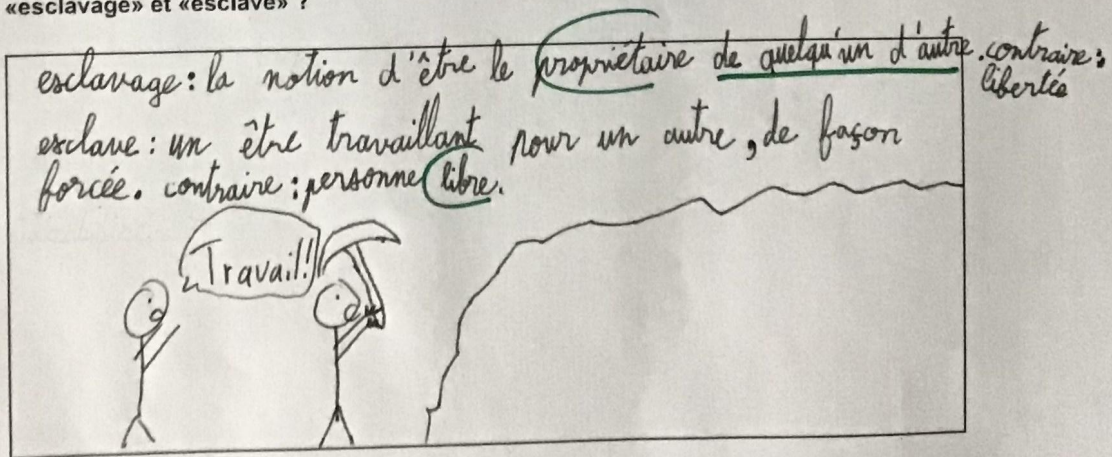 «esclavage» et «esclave» ?
esclavage : la notion d'être le propriétaire de quelqu'un d'autre. contraire :
libertée
esclave : un être travaillant pour un autre, de façon
forcée. contraire : personne libre.
Travail!